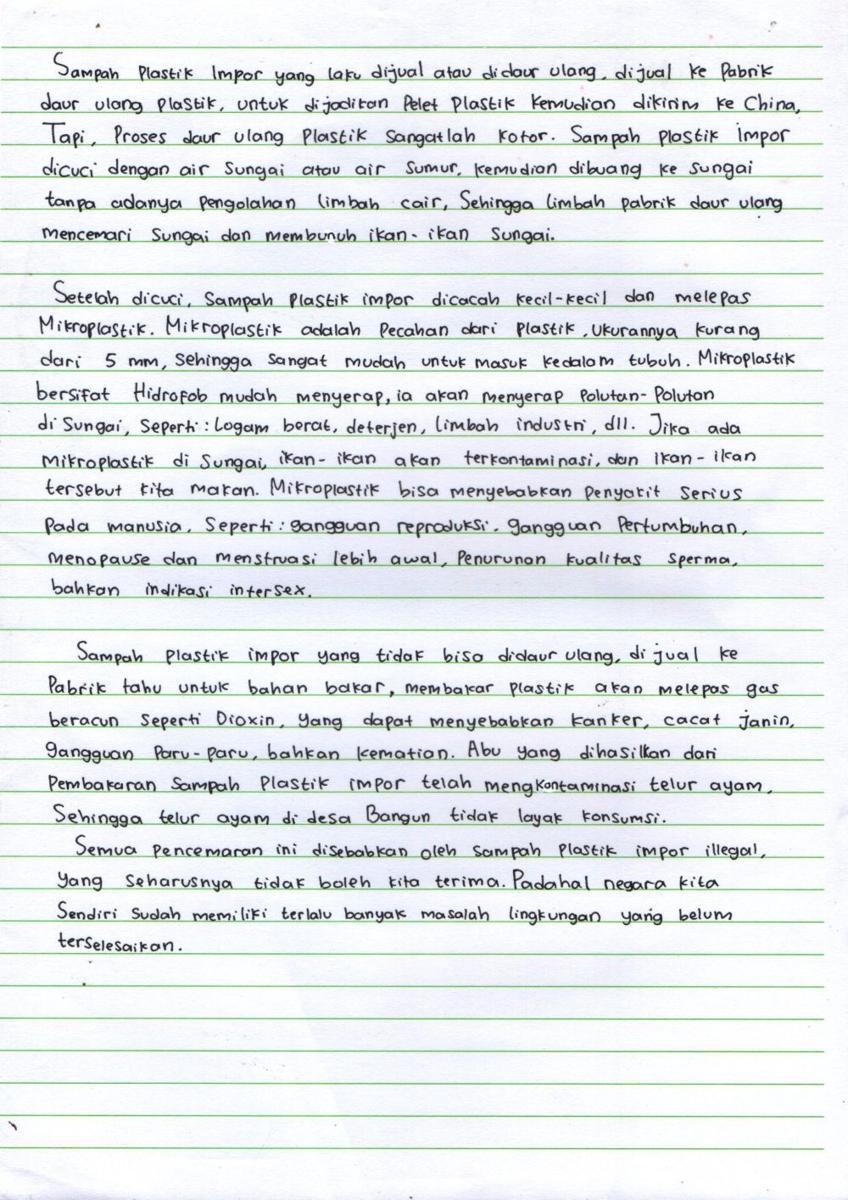 Sampah Plastik Impor yang laku dijual atau didaur ulang, dijual ke Pabrik
daur ulang plastik, untuk dijadikan Pelet Plastik kemudian dikirim ke China,
Tapi, Proses daur ulang Plastik sangatlah kotor. Sampah plastik impor
dicuci dengan air sungai atau air sumur, kemudian dibuang ke sungai
tanpa adanya Pengolahan limbah cair, Sehingga limbah pabrik daur ulang
mencemari Sungai dan membunuh ikan-ikan Sungai.
Setelah dicuci, Sampah Plastik impor dicacah kecil-kecil dan melepas
Mikroplastik. Mikroplastik adalah Pecahan dari Plastik, Ukurannya kurang
dari 5 mm, Sehingga Sangat mudah untuk masuk kedalam tubuh. Mikroplastik
bersifat Hidrofob mudah menyerap, ia akan menyerap Polutan-Polutan
di Sungai, Seperti: Logam berat, deterjen, limbah industri, dll. Jika ada
Mikroplastik di Sungai, ikan-ikan akan terkontaminasi, dan ikan-ikan
tersebut kita makan. Mikroplastik bisa menyebabkan Penyakit Serius
Pada manusia. Seperti: gangguan reproduksi. gangguan Pertumbuhan,
menopause dan menstruasi lebih awal, Penurunan kualitas sperma,
bahkan indikasi intersex.
Sampah plastik impor yang tidak bisa didaur ulang, di jual ke
Pabrik tahu untuk bahan bakar, membakar plastik akan melepas gas
beracun Seperti Dioxin, Yang dapat menyebabkan kanker, cacat janin,
gangguan Paru-Paru, bahkan kematian. Abu yang dihasilkan dari
Pembakaran Sampah Plastik impor telah mengkontaminasi telur ayam,
Sehingga telur ayam di desa Bangun tidak layak konsumsi.
Semua pencemaran ini disebabkan oleh sampah Plastik impor illegal,
yang seharusnya tidak boleh kita terima. Padahal negara kita
Sendiri Sudah memiliki terlalu banyak masalah lingkungan yang belum
terselesaikan.